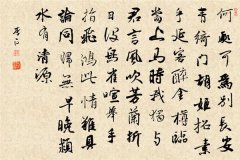 何處可為別長安
青綺門胡姬招素
手延客醉金樽臨
當上馬時我獨與
君言風吹芳蘭折
日沒鳥雀喧舉手
指飛鴻此情難具
論同歸無早晚潁
水有清源